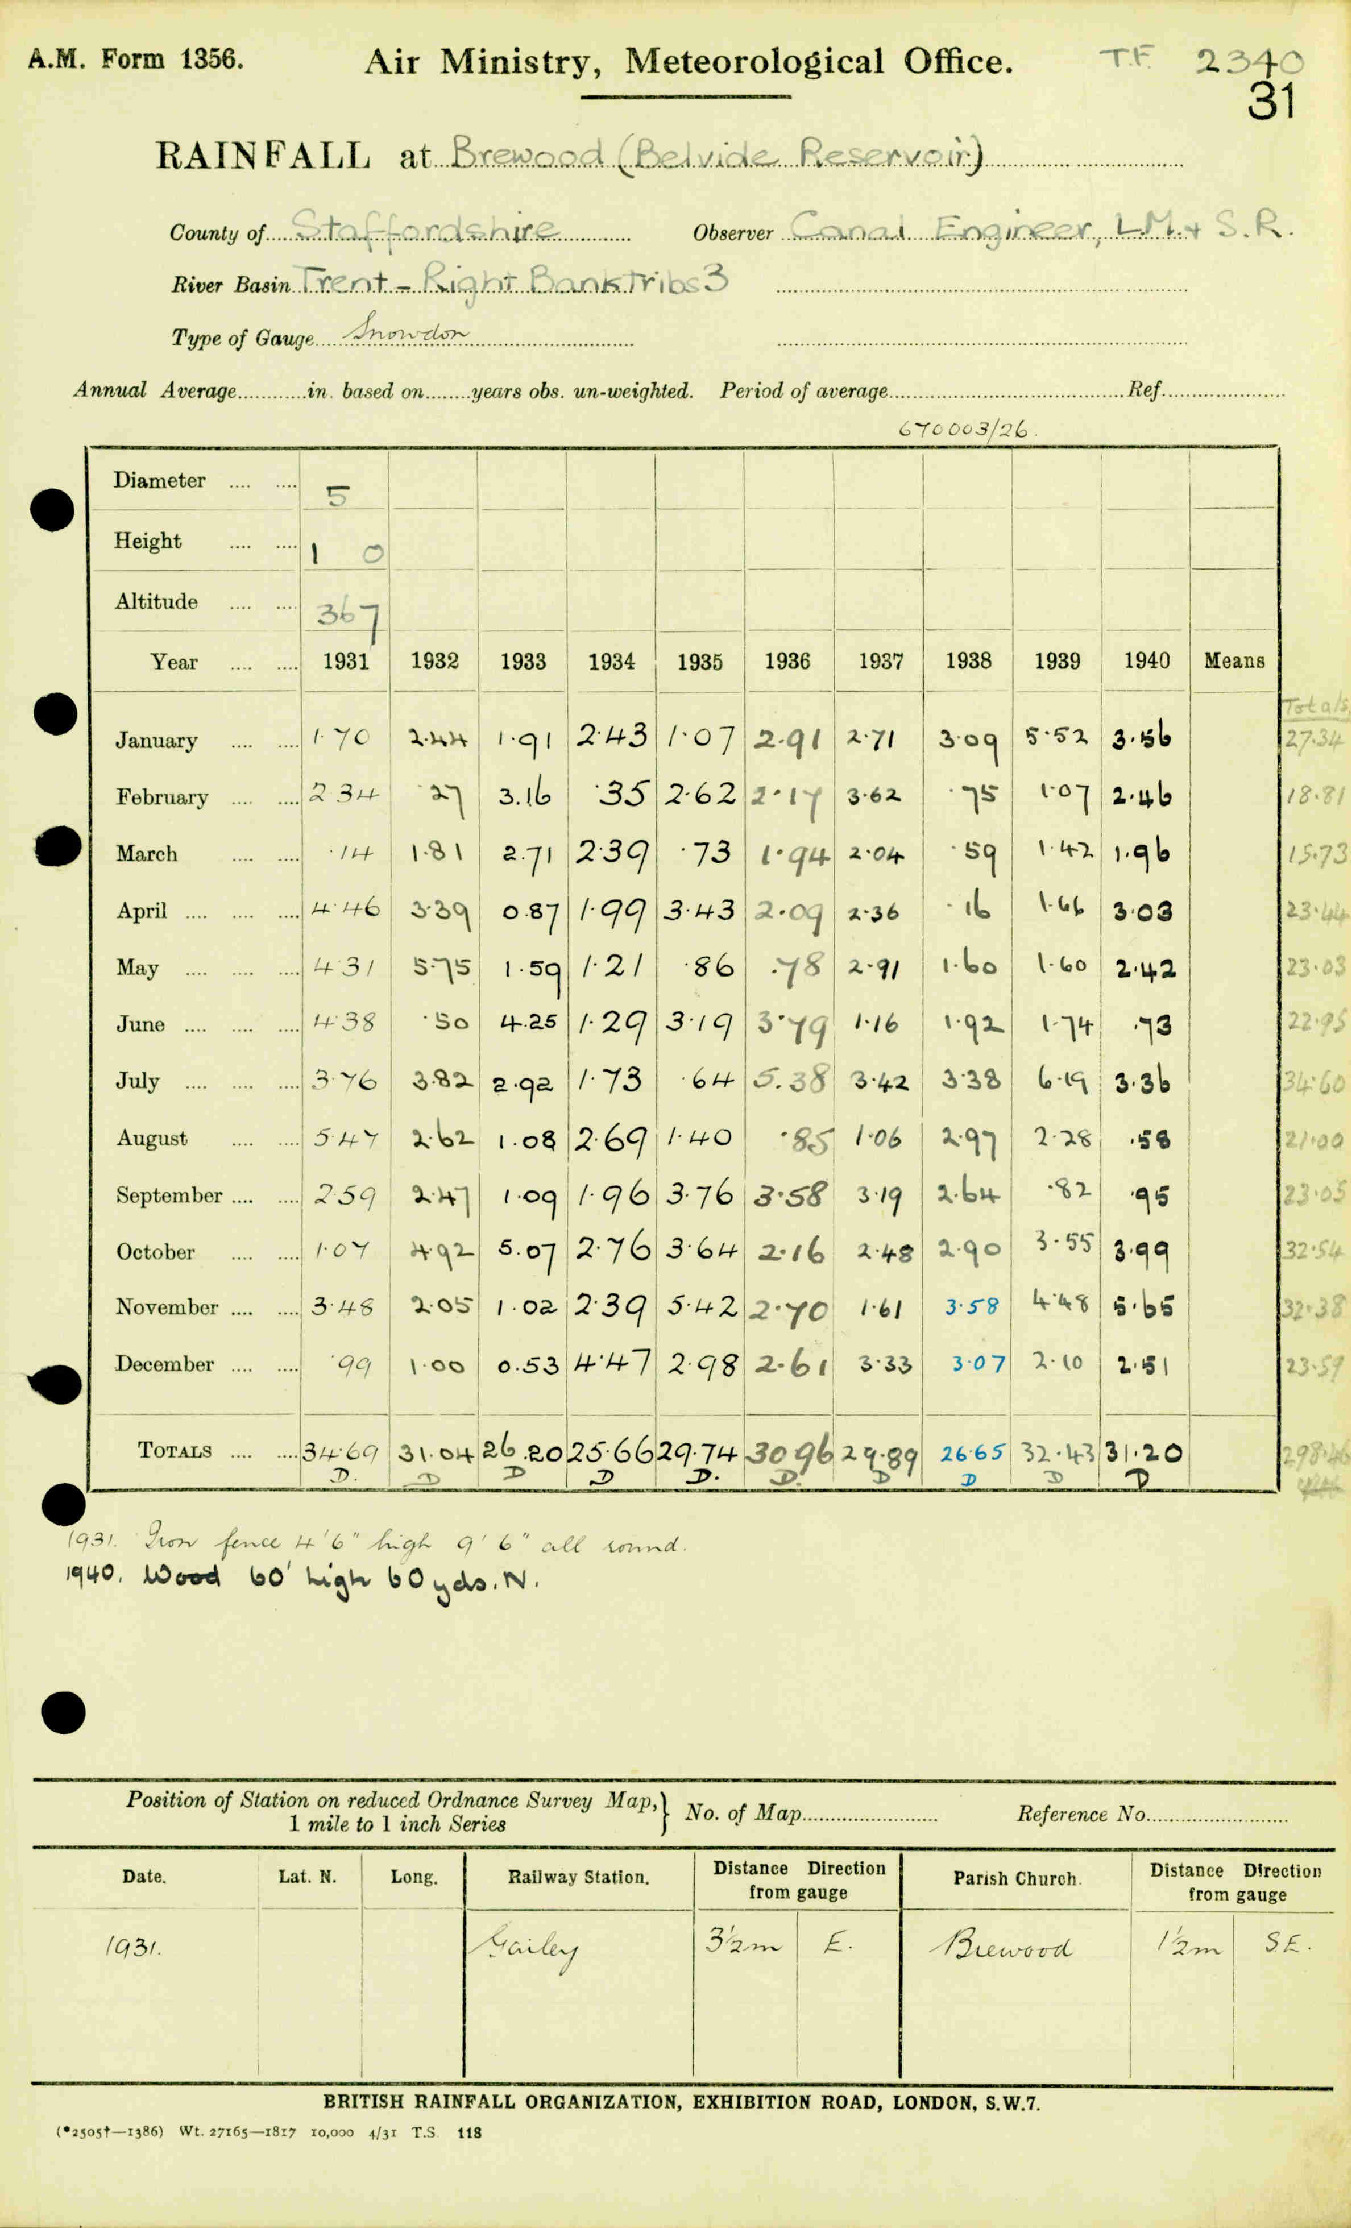 A.M. Form 1356. Air Ministry, Meteorological Office. T.F. 2340
31
RAINFALL at Brewood (Belvide Reservoir)
County of Staffordshire Observer Canal Engineer, L.M. & S.R.
River Basin Trent - Right Bank Tribs 3
Type of Gauge Snowdon
Annual Average in. based on years obs. un-weighted. Period of average Ref.
670003/26.
Diameter 5
Height 1 0
Altitude 367
Year 1931 1932 1933 1934 1935 1936 1937 1938 1939 1940 Means
Totals
January 1.70 2.44 1.91 2.43 1.07 2.91 2.71 3.09 5.52 3.56 27.34
February 2.34 .27 3.16 .35 2.62 2.17 3.62 .75 1.07 2.46 18.81
March .14 1.81 2.71 2.39 .73 1.94 2.04 .59 1.42 1.96 15.73
April 4.46 3.39 0.87 1.99 3.43 2.09 2.36 .16 1.66 3.03 23.44
May 4.31 5.75 1.59 1.21 .86 .78 2.91 1.60 1.60 2.42 23.03
June 4.38 .50 4.25 1.29 3.19 3.79 1.16 1.92 1.74 .73 22.95
July 3.76 3.82 2.92 1.73 .64 5.38 3.42 3.38 6.19 3.36 34.60
August 5.47 2.62 1.08 2.69 1.40 .85 1.06 2.97 2.28 .58 21.00
September 2.59 2.47 1.09 1.96 3.76 3.58 3.19 2.64 .82 .95 23.05
October 1.07 4.92 5.07 2.76 3.64 2.16 2.48 2.90 3.55 3.99 32.54
November 3.48 2.05 1.02 2.39 5.42 2.70 1.61 3.58 4.48 5.65 32.38
December .99 1.00 0.53 4.47 2.98 2.61 3.33 3.07 2.10 2.51 23.59
TOTALS 34.69 31.04 26.20 25.66 29.74 30.96 29.89 26.65 32.43 31.20 298.46
D. D D D D. D. D D D D
1931. Iron fence 4'6" high 9'6" all round.
1940. Wood 60' high 60yds. N.
Position of Station on reduced Ordnance Survey Map, } No. of Map Reference No.
1 mile to 1 inch Series
Date. Lat. N. Long. Railway Station. Distance Direction from gauge Parish Church. Distance Direction from gauge
1931. Gailey 3½m E. Brewood 1½m SE.
BRITISH RAINFALL ORGANIZATION, EXHIBITION ROAD, LONDON, S.W.7.
(*2505†—1386) Wt. 27165—1817 10,000 4/31 T.S. 118